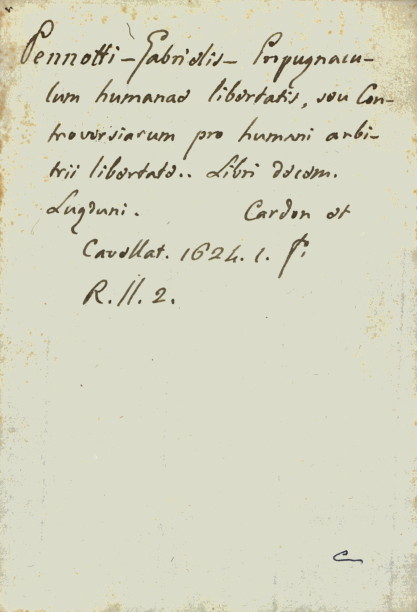 Pennotti - Gabrielis - Propugnacu-
lum humanae libertatis, seu Con-
troversiarum pro humani arbi-
trii libertate.. Libri decem.
Lugduni. Cardon et
Cavellat. 1624. 1. f.
R. II. 2.
C